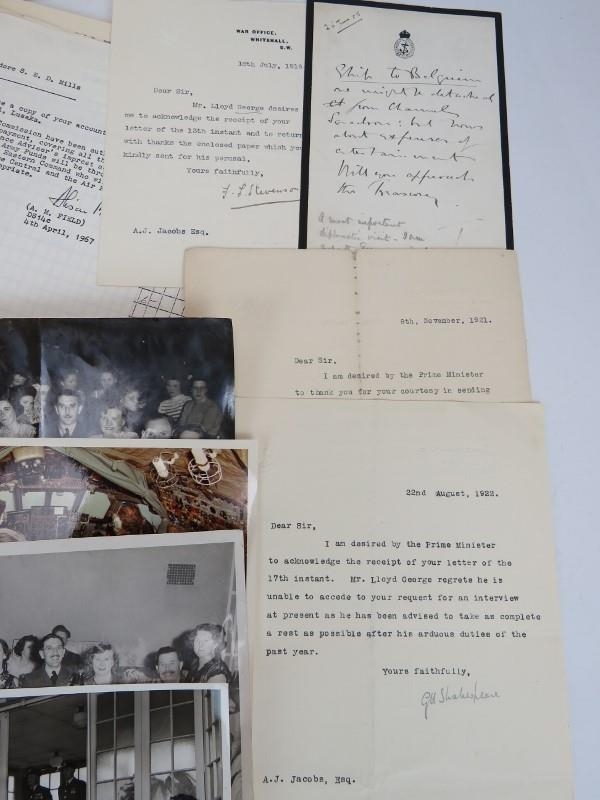 dore S. E. D. Mills
s a copy of your account
Lusaka.
ommission have been
payment, covering all th
ance Adviser's imprest
Army Funds will be thr
Eastern Command who wi
e Central and the Air
(A. M. FIELD)
DS14c
4th April, 1967
WAR OFFICE,
WHITEHALL,
S.W.
18th July, 1916
Dear Sir,
Mr. Lloyd George desires
me to acknowledge the receipt of your
letter of the 13th instant and to return
with thanks the enclosed paper which you
kindly sent for his perusal.
Yours faithfully,
F. L. Stevenson
A.J. Jacobs Esq.
Ship to Belgium
we might be detached
from Channel
Squadron: but
about expenses of
entertainment
Will you approach
the Treasury
A most important
diplomatic visit - I am
8th, November, 1921.
Dear Sir,
I am desired by the Prime Minister
to thank you for your courtesy in sending
22nd August, 1922.
Dear Sir,
I am desired by the Prime Minister
to acknowledge the receipt of your letter of the
17th instant. Mr. Lloyd George regrets he is
unable to accede to your request for an interview
at present as he has been advised to take as complete
a rest as possible after his arduous duties of the
past year.
Yours faithfully,
GH Shakespeare
A.J. Jacobs, Esq.